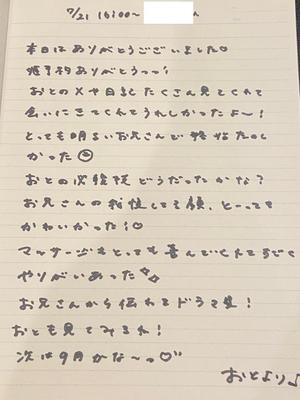 7/21 16:00〜
本日はありがとうございました♡
ご予約ありがとうっっ!
おとのXや日記たくさん見てくれて
会いにきてくれてうれしかったよ〜!
とっても明るいお兄さんで終始たのし
かった☺
おとの必殺技どうだったかな?
お兄さんの我慢してる顔、とーっても
かわいかった!♡
マッサージもとっても喜んでくれてすごく
やりがいあった✨
お兄さんから伝わるドラマ愛!
おとも見てみるね!
次は9月かな〜っ♡
おとより♪